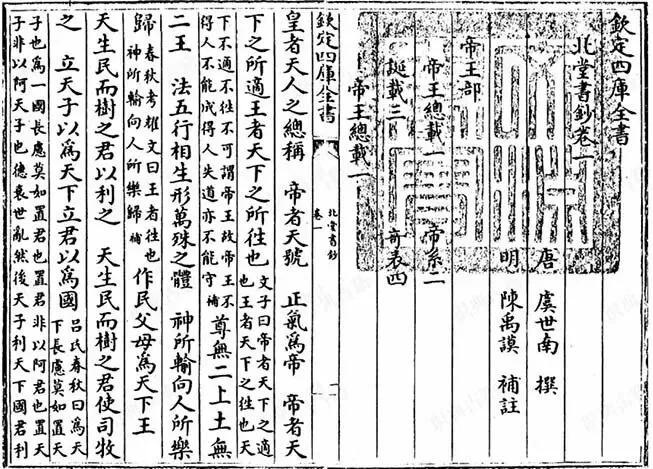 欽定四庫全書
北堂書鈔卷一
唐 虞世南 撰
明 陳禹謨 補註
帝王部
帝王總載一 帝系二
誕載三 奇表四
帝王總載一
欽定四庫全書
北堂書鈔
卷一
一
皇者天人之總稱 帝者天號 正氣為帝 帝者天
下之所適王者天下之所往也 文子曰帝者天下之適
也王者天下之往也天
下不適不往不可謂帝王故帝王不
得人不能成得人失道亦不能守補 尊無二上土無
二王 法五行相生形萬殊之體 神所輸向人所樂
歸 春秋考耀文曰王者往也
神所輸向人所樂歸補 作民父母為天下王
天生民而樹之君以利之 天生民而樹之君使司牧
之 立天子以為天下立君以為國 呂氏春秋曰為天
下長慮莫如置天
子也為一國長慮莫如置君也置君非以阿君也置天
子非以阿天子也德衰世亂然後天子利天下國君利